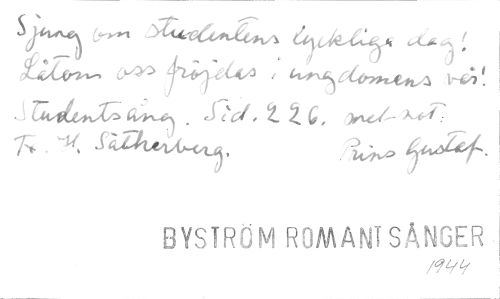 Sjung om studentens lyckliga dag!
Låtom oss fröjdas i ungdomens vår!
Studentsång. Sid. 226. mel-not:
Tx. H. Sätherberg. Prins Gustaf.
BYSTRÖM ROMANT SÅNGER
1944